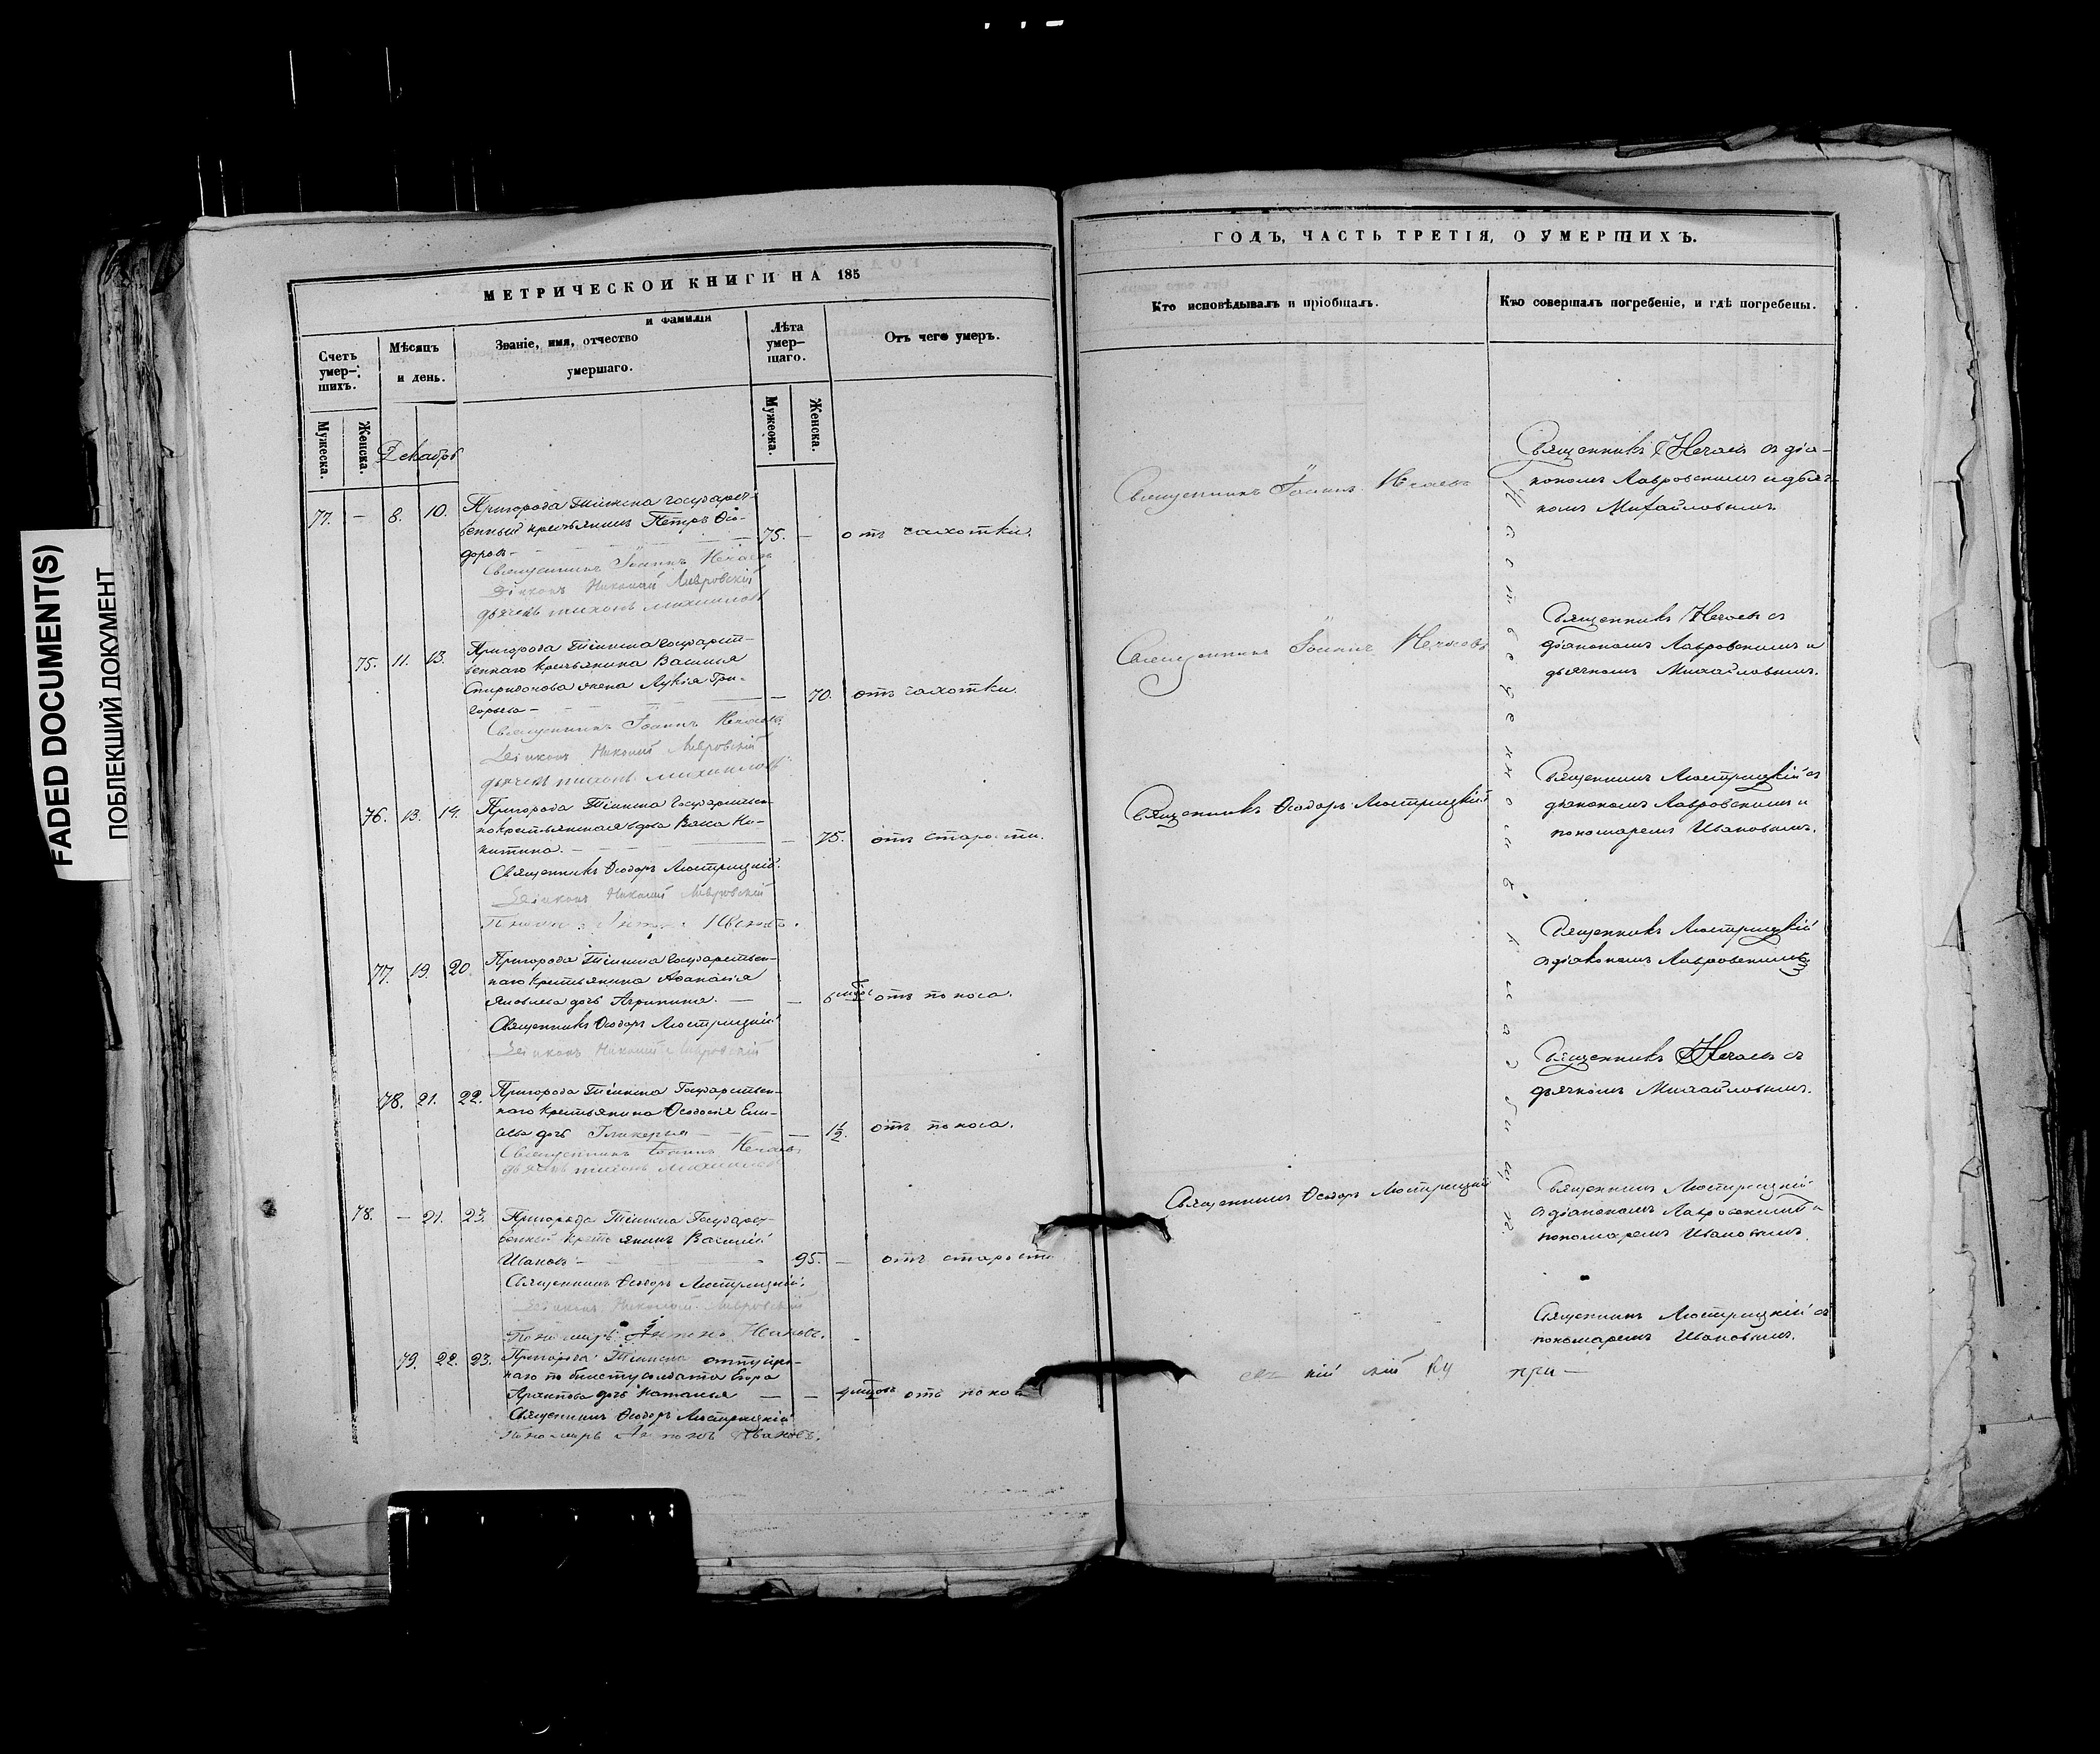 FADED DOCUMENT(S)
ПОБЛЕКШИЙ ДОКУМЕНТ
МЕТРИЧЕСКОЙ КНИГИ НА 185
Счетъ умер-шихъ.
Мѣсяцъ и день.
Званіе, имя, отчество и фамилія
умершаго.
Лѣта умер-шаго.
Отъ чего умеръ.
Мужеска.
Женска.
Декабрь
Мужеска.
Женска.
77. — 8. 10. Пригорода Тіинска государст-
венный крестьянинъ Петръ Ѳео-
доровъ — 75. — отъ чахотки.
Священникъ Іоаннъ Нечаевъ
Діаконъ Николай Лавровскій
дьячекъ Тихонъ Михайловъ
75. 11. 13. Пригорода Тіинска государст-
веннаго крестьянина Василья
Спиридонова жена Лукія Гри-
горьева — — 70. отъ чахотки.
Священникъ Іоаннъ Нечаевъ
Діаконъ Николай Лавровскій
дьячекъ Тихонъ Михайловъ
76. 13. 14. Пригорода Тіинска Государствен-
ная вдова Ни-
китина. — — 75. отъ старости.
Священникъ Ѳеодоръ Люстрицкій.
Діаконъ Николай Лавровскій
Ивановъ.
77. 19. 20. Пригорода Тіинска государствен-
наго крестьянина Аѳанасія
Яковлева дочь Агрипина. — — 6 отъ поноса.
Священникъ Ѳеодоръ Люстрицкій
Діаконъ Николай Лавровскій
78. 21. 22. Пригорода Тіинска Государствен-
наго крестьянина Ѳеодосія Ели-
сеева дочь Гликерія — — 1½. отъ поноса.
Священникъ Іоаннъ Нечаевъ
дьячекъ Тихонъ Михайловъ
78. — 21. 23. Пригорода Тіинска Государст-
венный крестьянинъ Василій
Ивановъ — 95. — отъ старости
Священникъ Ѳеодоръ Люстрицкій.
Діаконъ Николай Лавровскій
Пономарь Антонъ Ивановъ.
79. 22. 23. Пригорода Тіинска отпущен-
наго по билету солдата Егора
дочь Наталья — — отъ поноса
Священникъ Ѳеодоръ Люстрицкій
Пономарь Антонъ Ивановъ.
ГОДЪ, ЧАСТЬ ТРЕТІЯ, О УМЕРШИХЪ.
Кто исповѣдывалъ и пріобщалъ.
Кто совершалъ погребеніе, и гдѣ погребены.
Священникъ Іоаннъ Нечаевъ
Священникъ Нечаевъ съ діа-
кономъ Лавровскимъ и дьяч-
комъ Михайловымъ.
Священникъ Іоаннъ Нечаевъ
Священникъ Нечаевъ съ
діакономъ Лавровскимъ и
дьячкомъ Михайловымъ.
Священникъ Ѳеодоръ Люстрицкій
Священникъ Люстрицкій съ
діакономъ Лавровскимъ и
пономаремъ Ивановымъ.
Священникъ Люстрицкій
съ діакономъ Лавровскимъ
Священникъ Нечаевъ съ
дьячкомъ Михайловымъ.
Священникъ Ѳеодоръ Люстрицкій
Священникъ Люстрицкій
съ діакономъ Лавровскимъ и
пономаремъ Ивановымъ.
Священникъ Люстрицкій съ
пономаремъ Ивановымъ.
при —